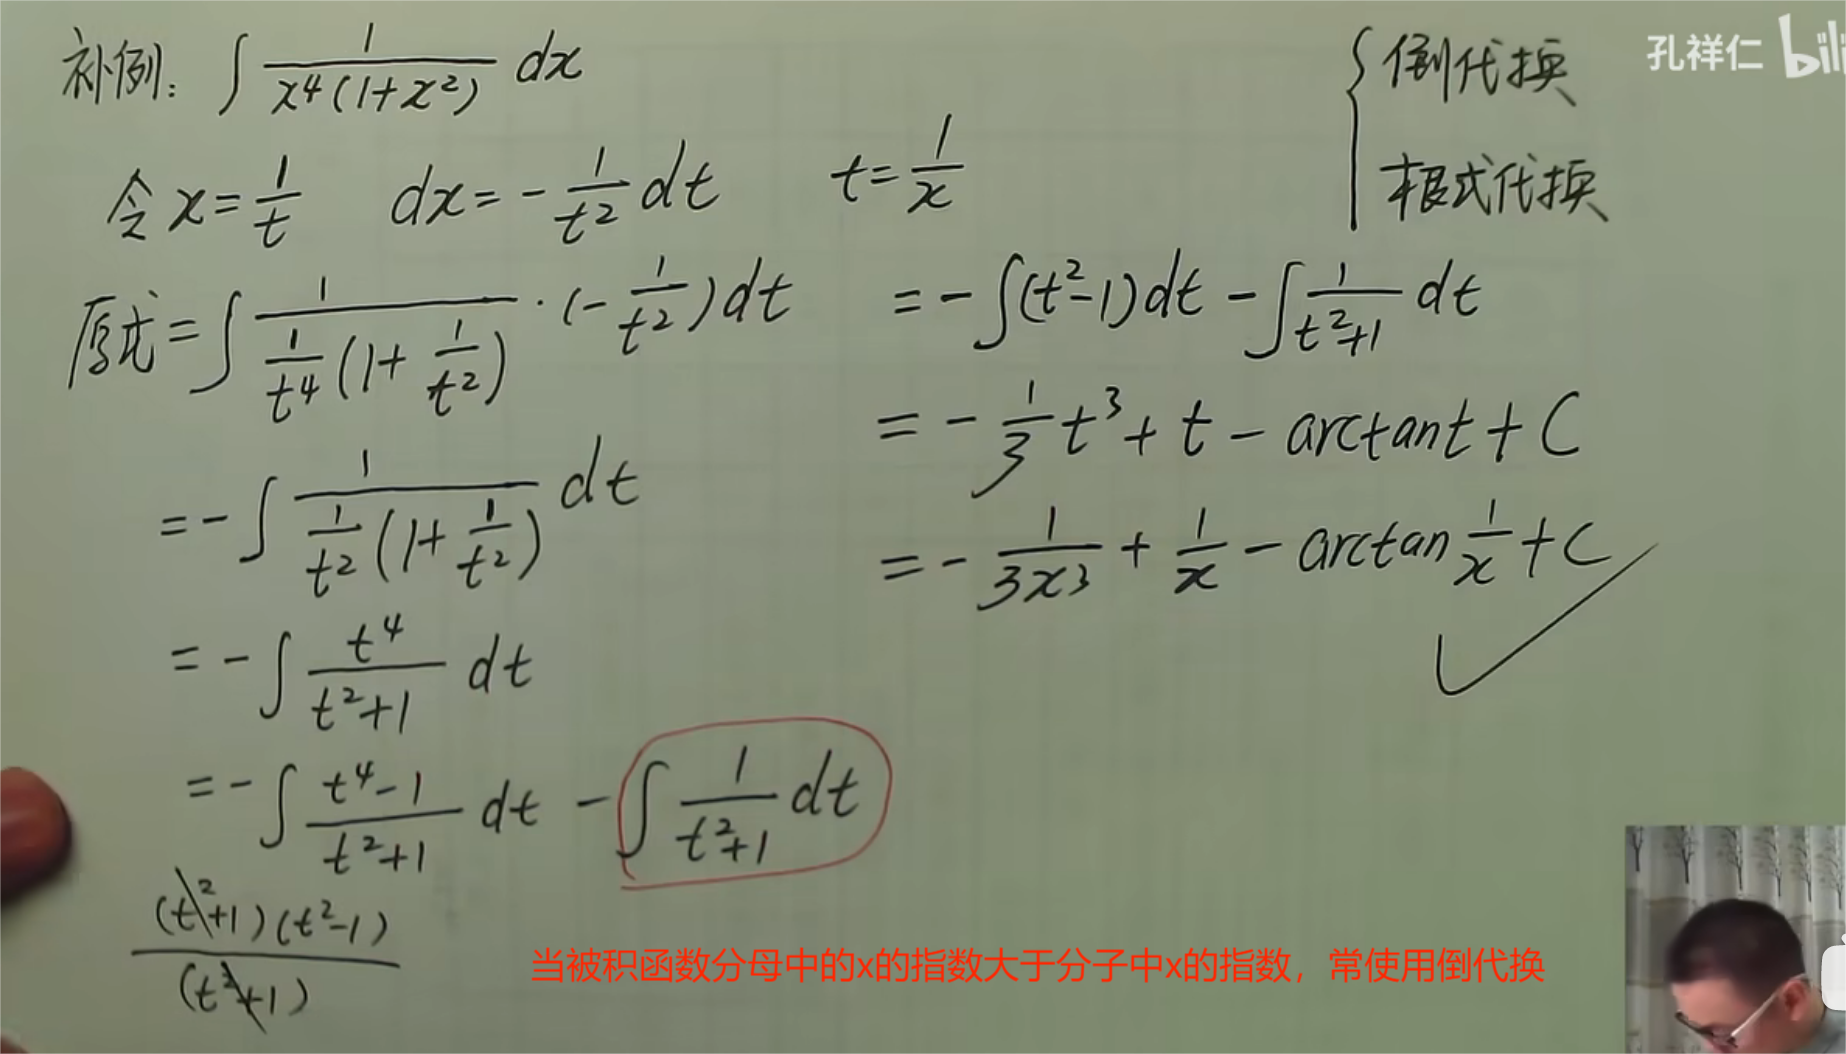 补例: ∫ 1/(x⁴(1+x²)) dx
令 x = 1/t  dx = -1/t² dt  t = 1/x
原式 = ∫ 1/(1/t⁴(1+1/t²)) · (-1/t²) dt
= -∫ 1/(1/t²(1+1/t²)) dt
= -∫ t⁴/(t²+1) dt
= -∫ (t⁴-1)/(t²+1) dt - ∫ 1/(t²+1) dt
(t²+1)(t²-1)/(t²+1)
= -∫(t²-1)dt - ∫ 1/(t²+1) dt
= -1/3 t³ + t - arctant + C
= -1/(3x³) + 1/x - arctan 1/x + C
倒代换
根式代换
孔祥仁 bili
当被积函数分母中的x的指数大于分子中x的指数，常使用倒代换